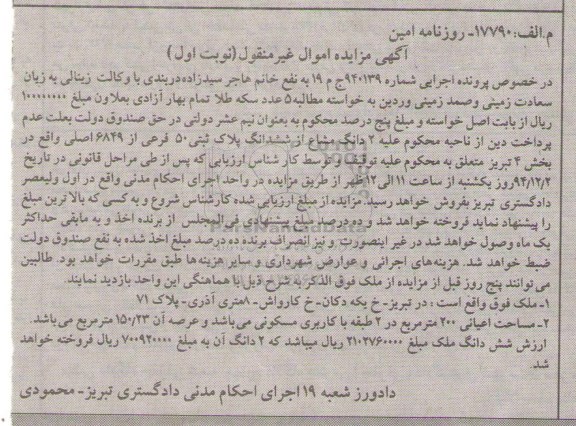 م.الف:۱۷۷۹۰- روزنامه امین
آگهی مزایده اموال غیرمنقول(نوبت اول)
در خصوص پرونده اجرایی شماره ۹۴۰۱۳۹ج م ۱۹ به نفع خانم هاجر سیدزاده‌دربندی با وکالت زینالی به زیان
سعادت زمینی وصمد زمینی وردین به خواسته مطالبه۵ عدد سکه طلا تمام بهار آزادی بعلاون مبلغ ۱۰۰۰۰۰۰۰
ریال از بابت اصل خواسته و مبلغ پنج درصد محکوم به بعنوان نیم عشر دولتی در حق صندوق دولت بعلت عدم
پرداخت دین از ناحیه محکوم علیه ۲ دانگ مشاع از ششدانگ پلاک ثبتی۵۰ فرعی از ۶۸۴۹اصلی واقع در
بخش ۴ تبریز متعلق به محکوم علیه توقیف و توسط کارشناس ارزیابی که پس از طی مراحل قانونی در تاریخ
۹۴/۱۲/۲روز یکشنبه از ساعت ۱۱ الی۱۲ظهر از طریق مزایده در واحد اجرای احکام مدنی واقع در اول ولیعصر
دادگستری تبریز بفروش خواهد رسید. مزایده از مبلغ ارزیابی شده کارشناس شروع و به کسی که بالاترین مبلغ
را پیشنهاد نماید فروخته خواهد شد و ده درصد مبلغ پیشنهادی فی‌المجلس از برنده اخذ و به مابقی حداکثر
یک ماه وصول خواهد شد در غیر اینصورت و نیز انصراف برنده ده درصد مبلغ اخذ شده به نفع صندوق دولت
ضبط خواهد شد. هزینه‌های اجرائی و عوارض شهرداری و سایر هزینه‌ها طبق مقررات خواهد بود. طالبین
می‌توانند پنج روز قبل از مزایده از ملک فوق الذکر به شرح ذیل با هماهنگی این واحد بازدید نمایند.
۱- ملک فوق واقع است : در تبریز- خ یکه دکان- خ کارواش- ۸متری آذری- پلاک ۷۱
۲- مساحت اعیانی ۲۰۰ مترمربع در ۲ طبقه با کاربری مسکونی می‌باشد و عرصه آن ۱۵۰/۲۳ مترمربع می‌باشد.
ارزش شش دانگ ملک مبلغ ۲۱۰۲۷۶۰۰۰۰ ریال میباشد که ۲ دانگ آن به مبلغ ۷۰۰۹۲۰۰۰۰ ریال فروخته خواهد
شد.
دادورز شعبه ۱۹ اجرای احکام مدنی دادگستری تبریز- محمودی